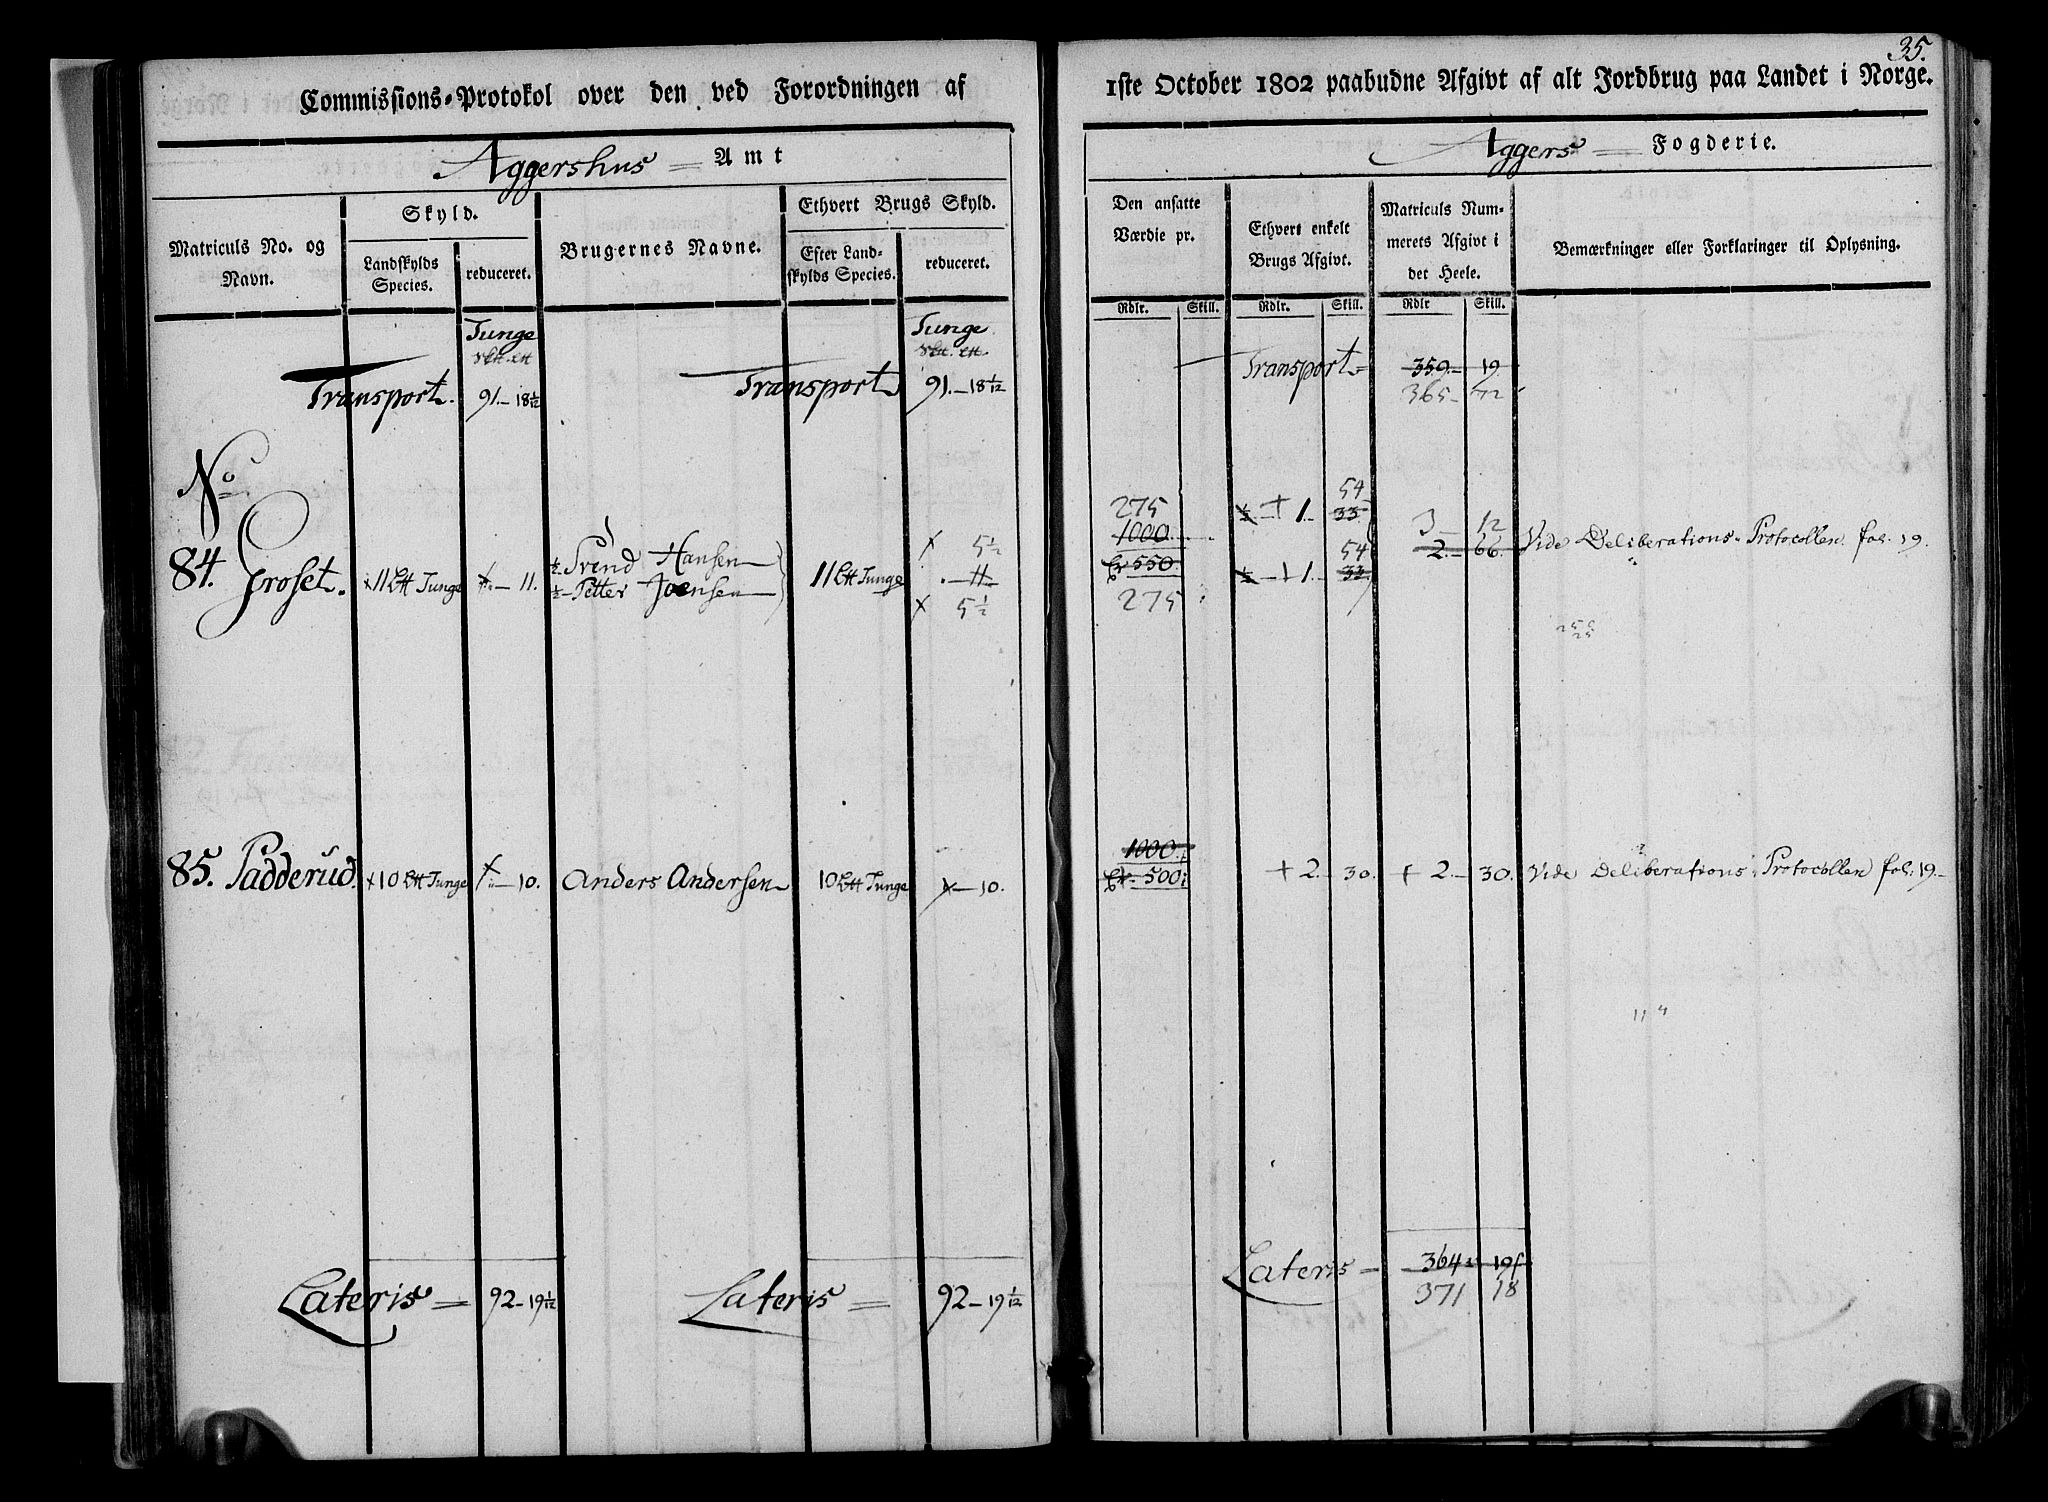 35.
Commissions-Protokol over den ved Forordningen af 1ste October 1802 paabudne Afgivt af alt Jordbrug paa Landet i Norge.
Aggershus Amt
Aggers Fogderie.
Matriculs No. og Navn.
Skyld.
Landskylds Species.
reduceret.
Brugernes Navne.
Ethvert Brugs Skyld.
Efter Landskylds Species.
reduceret.
Den ansatte Værdie pr.
Ethvert enkelt Brugs Afgivt.
Matriculs Nummerets Afgivt i det Heele.
Bemærkninger eller Forklaringer til Oplysning.
Rdlr. Skill. Rdlr. Skill. Rdlr Skill.
Tunge Tunge
Transport. 91.- 18 1/12 Transport 91.- 18 1/12 Transport 359.- 19
365- 72
No.
275 + 1.- 54
1000 33 3- 12
84. Groset. 11 Tunge 11. 1/2 Svend Hansen 11 Tunge 5 1/2
1/2 Petter Joensen 11
5 1/2
550 + 1.- 54 2.- 66. Vide Deliberations-Protocollen fol. 19.
275 33
85. Padderud. 10 Tunge 10. Anders Andersen 10 Tunge 10. 1000
500 + 2. 30. + 2.- 30. Vide Deliberations-Protocollen fol. 19.
Lateris 92- 19 1/12 Lateris 92- 19 1/12 Lateris 364 19
371 18